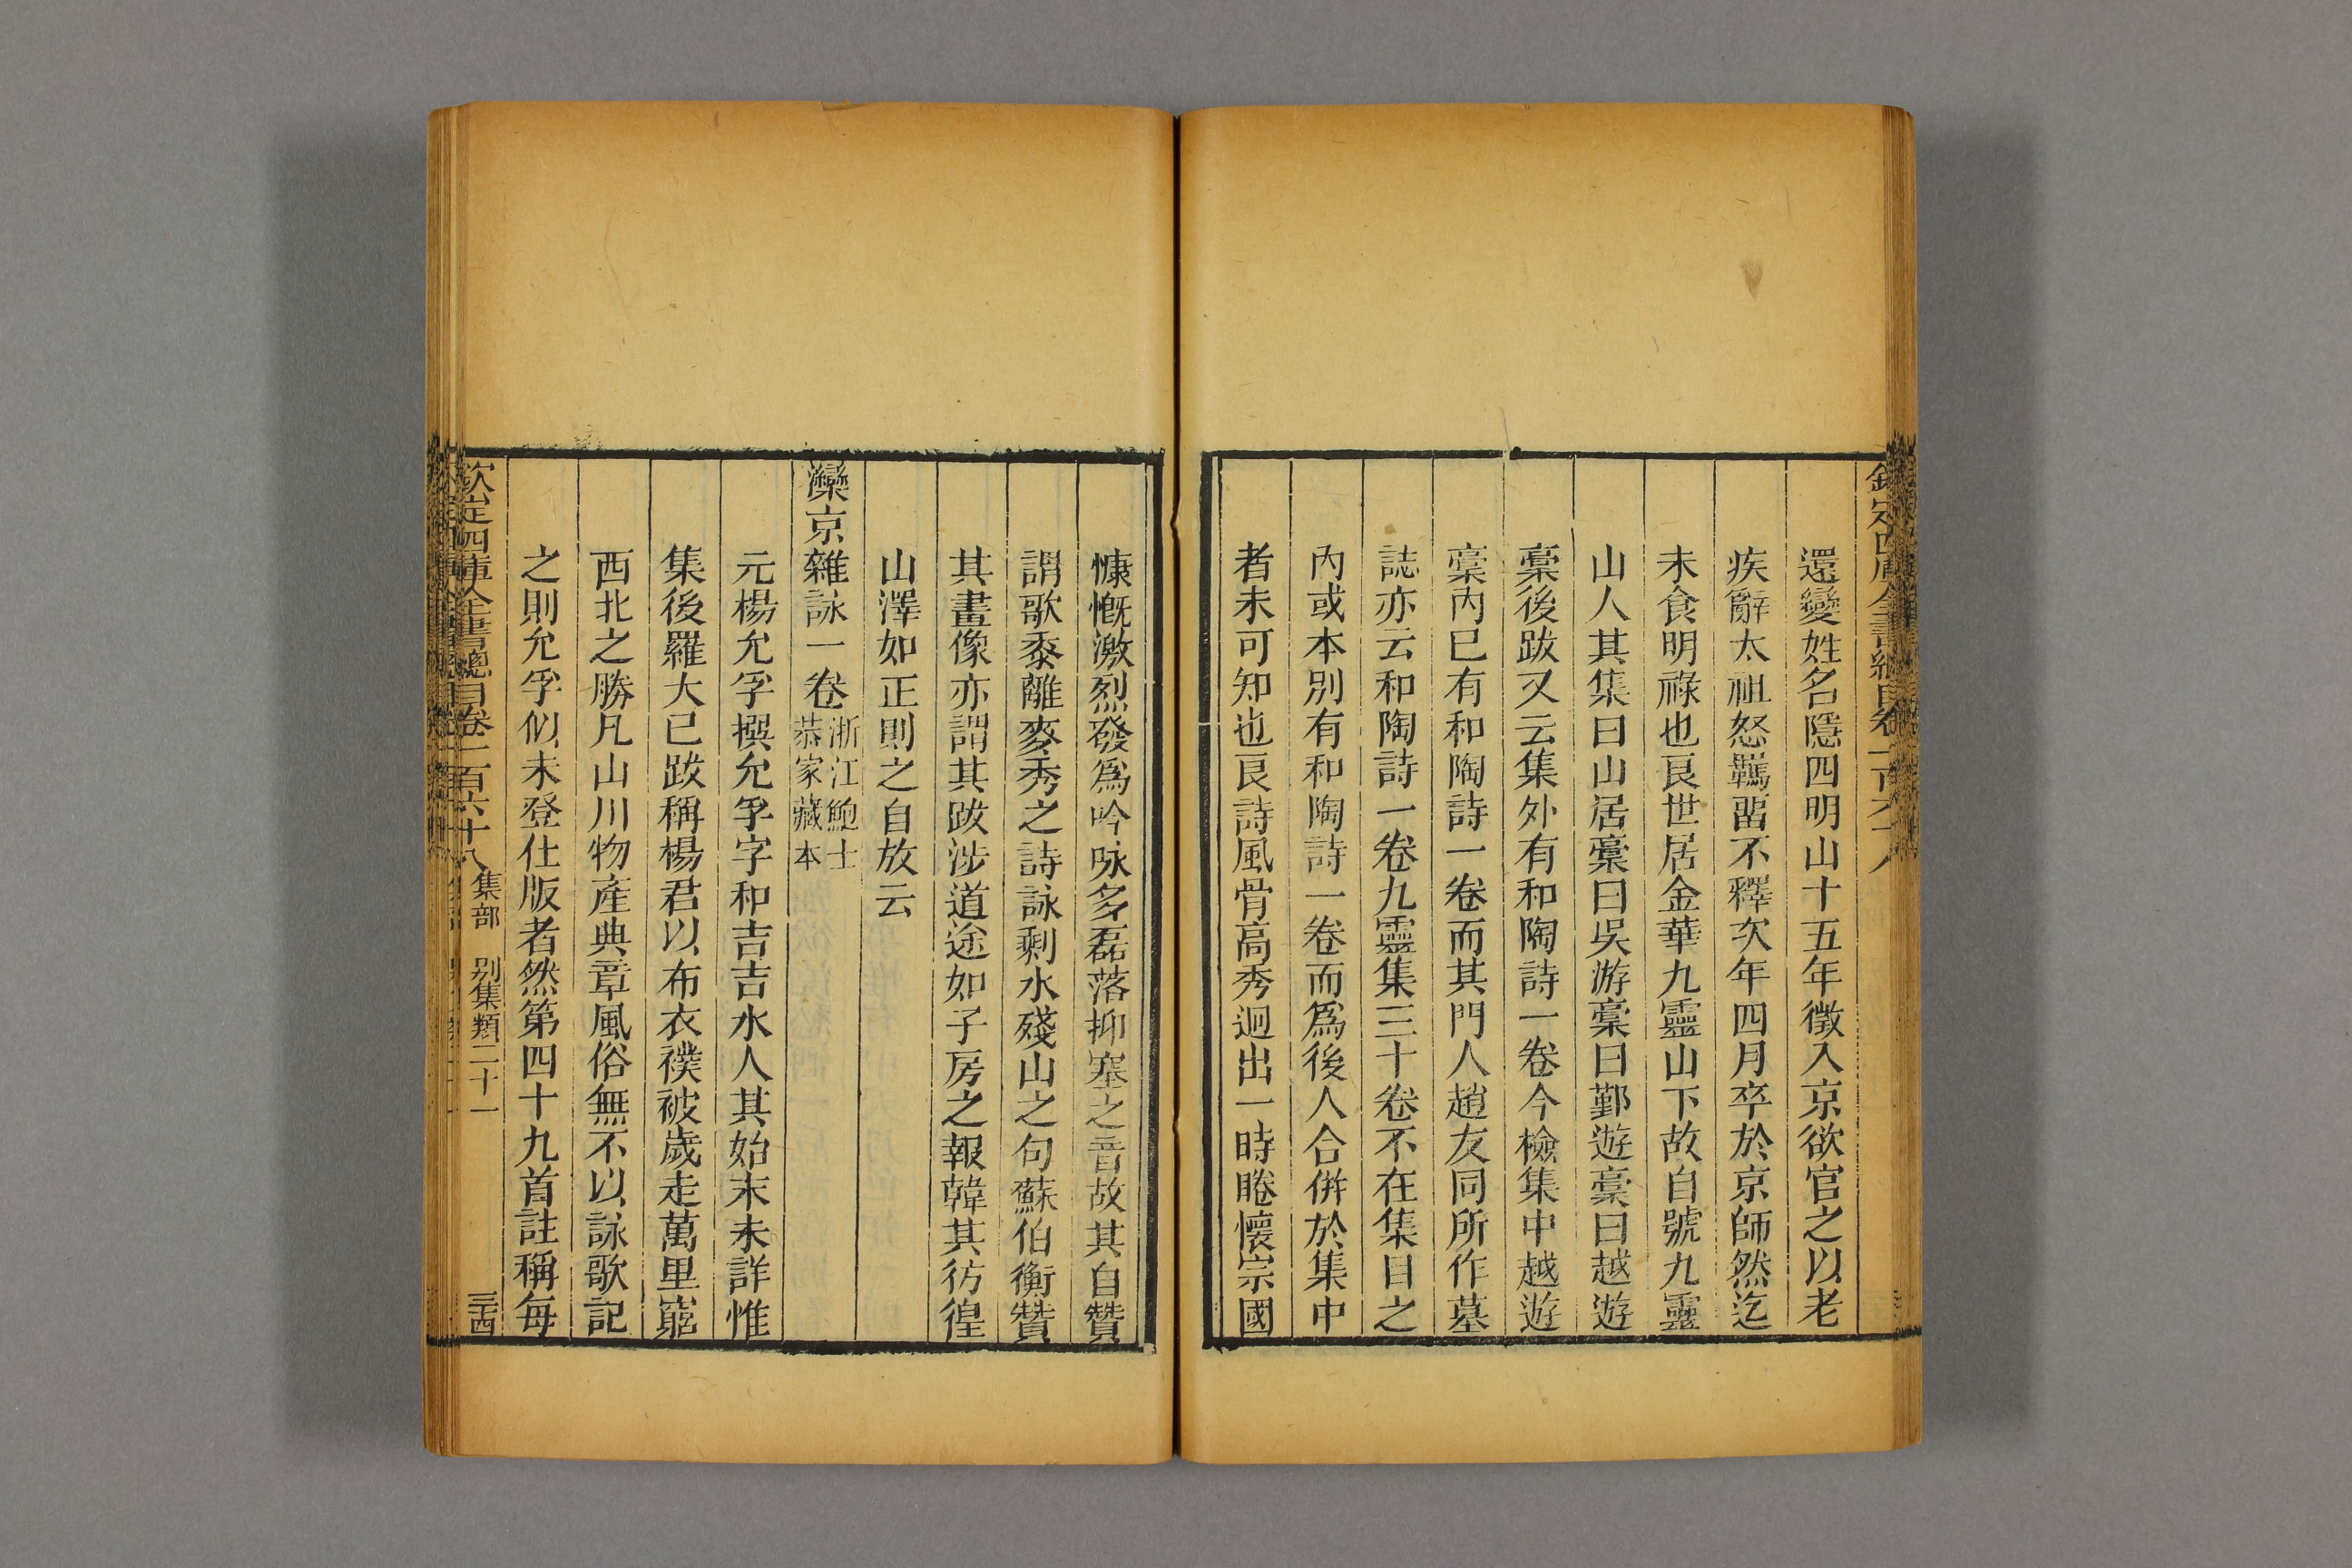 欽定四庫全書總目卷一百六十八
還變姓名隱四明山十五年徵入京欲官之以老
疾辭太祖怒羈留不釋次年四月卒於京師然迄
未食明祿也良世居金華九靈山下故自號九靈
山人其集曰山居稾曰吳游稾曰鄞遊稾曰越遊
稾後跋又云集外有和陶詩一卷今檢集中越遊
稾內已有和陶詩一卷而其門人趙友同所作墓
誌亦云和陶詩一卷九靈集三十卷不在集目之
內或本別有和陶詩一卷而爲後人合併於集中
者未可知也良詩風骨高秀迥出一時睠懷宗國
慷慨激烈發爲吟咏多磊落抑塞之音故其自贊
謂歌黍離麥秀之詩詠剩水殘山之句蘇伯衡贊
其畫像亦謂其跋涉道途如子房之報韓其彷徨
山澤如正則之自放云
灤京雜詠一卷浙江鮑士恭家藏本
元楊允孚撰允孚字和吉吉水人其始末未詳惟
集後羅大已跋稱楊君以布衣襆被歲走萬里窮
西北之勝凡山川物產典章風俗無不以詠歌記
之則允孚似未登仕版者然第四十九首註稱每
欽定四庫全書總目卷一百六十八 集部 別集類二十一 三十四